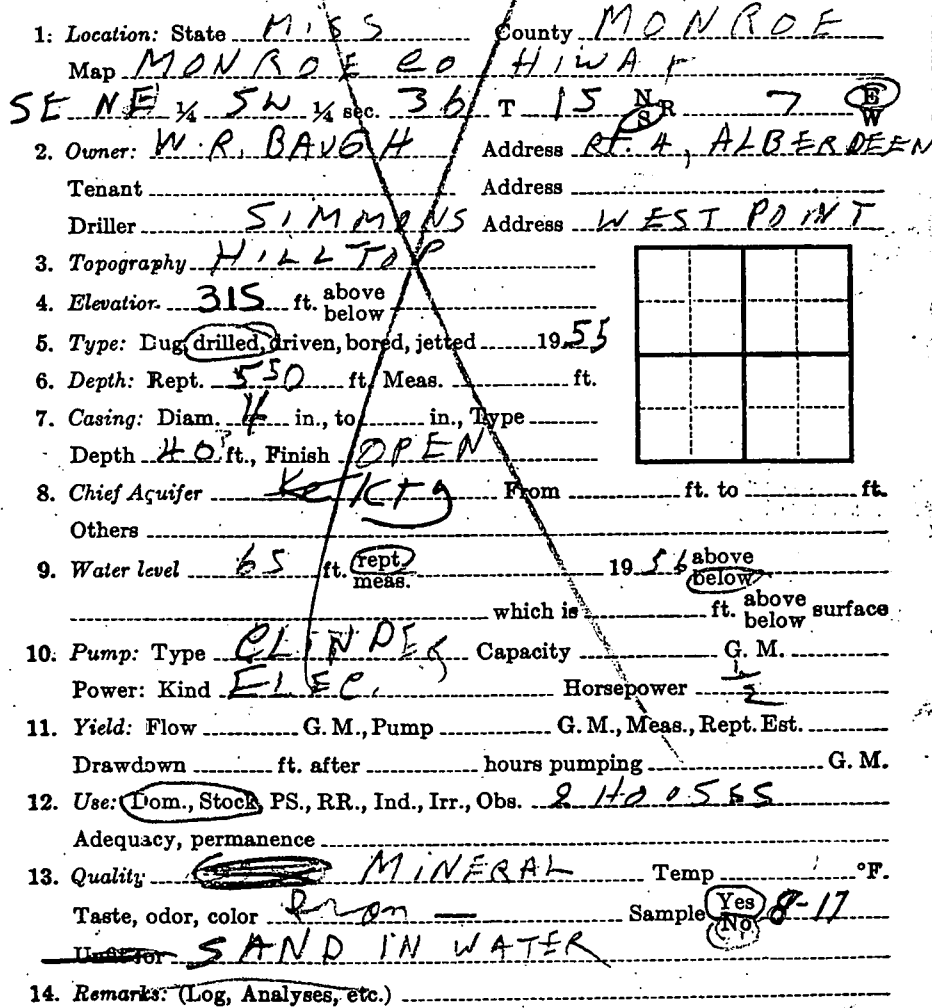 1: Location: State MISS County MONROE
Map MONROE CO HIWAY
SE NE ¼ SW ¼ sec. 36 T 15 N S R 7 E W
2. Owner: W.R. BAUGH Address RT. 4, ALBERDEEN
Tenant Address
Driller SIMMONS Address WEST POINT
3. Topography HILLTOP
4. Elevation 315 ft. above below
5. Type: Dug, drilled, driven, bored, jetted 1955
6. Depth: Rept. 550 ft. Meas. ft.
7. Casing: Diam. 4 in., to in., Type
Depth 40? ft., Finish OPEN
8. Chief Aquifer From ft. to ft.
Others
9. Water level 65 ft. rept. meas. 1956 above below
which is ft. above below surface
10. Pump: Type Capacity G. M.
Power: Kind ELEC. Horsepower ½
11. Yield: Flow G. M., Pump G. M., Meas., Rept. Est.
Drawdown ft. after hours pumping G. M.
12. Use: Dom., Stock, PS., RR., Ind., Irr., Obs. 2 HOUSES
Adequacy, permanence
13. Quality MINERAL Temp °F.
Taste, odor, color Iron — Sample Yes No 8-17
Unfit for SAND IN WATER
14. Remarks: (Log, Analyses, etc.)